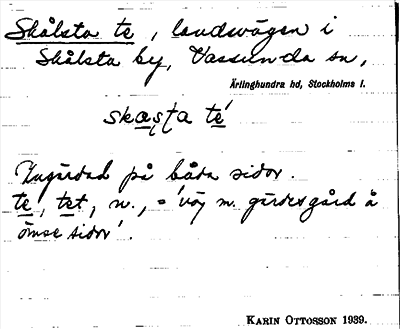 Skålsta te, landsvägen i
Skålsta by, Vassunda sn,
Ärlinghundra hd, Stockholms l.
te
Ingärdad på båda sidor.
te, tet, n., = 'väg m. gärdesgård å
ömse sidor'.
KARIN OTTOSSON 1939.